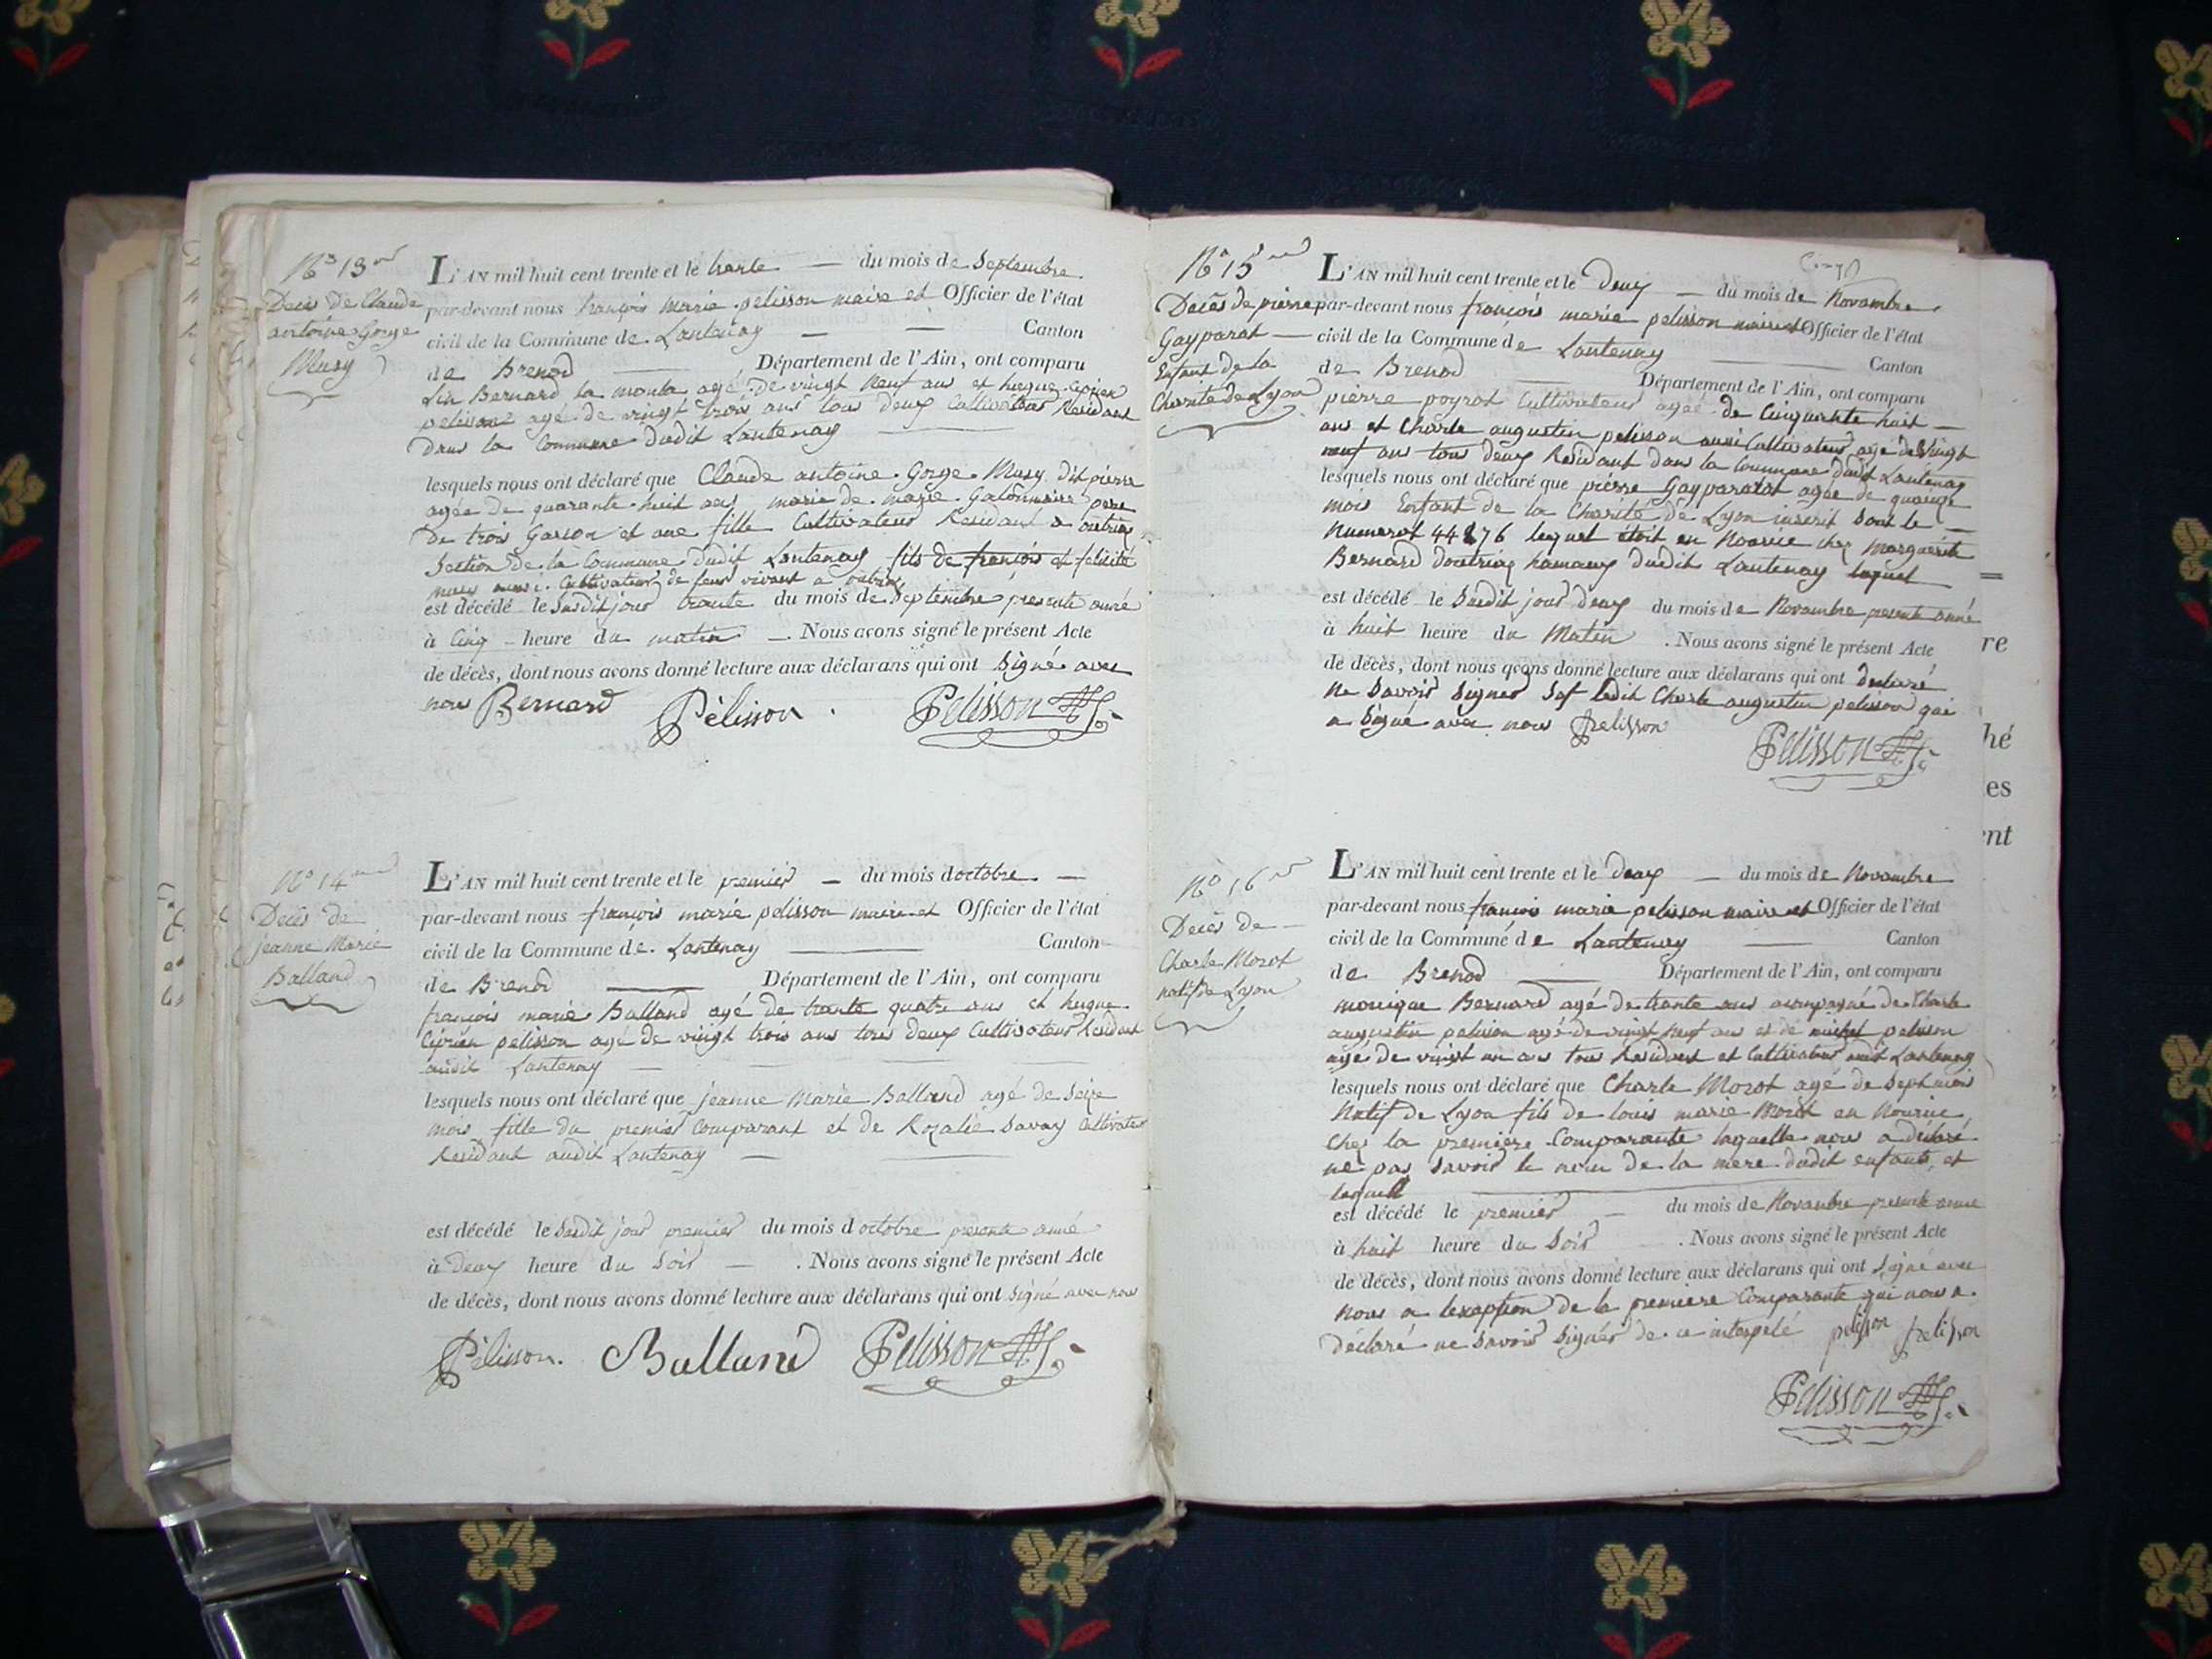 N° 13
Décès de Claude
antoine Gorge
Musy
L'AN mil huit cent trente et le trante — du mois de Septembre
par-devant nous françois marie pelisson maire et Officier de l'état
civil de la Commune de Lantenay — — Canton
de Brenod — Département de l'Ain, ont comparu
Bernard la monta agé de vingt neuf ans et hugue ciprien
pelisson agé de vingt trois ans tous deux Cultivateur Residant
Dans la Commune dudit Lantenay
lesquels nous ont déclaré que Claude antoine Gorge Musy dit pierre
agée de quarante huit ans marie de marie pere
De trois Garson et une fille Cultivateur Residant a outriaz
Section de la Commune dudit Lantenay fils de françois et felicité
musy aussi Cultivateur de leur vivant a outriaz
est décédé le Susdit jour trante du mois de Septembre presente anné
à Cinq heure du matin — . Nous avons signé le présent Acte
de décès, dont nous avons donné lecture aux déclarans qui ont Signé avec
nous Bernard Pélisson Pelisson
N° 14
Décès de
jeanne Marie
Balland
L'AN mil huit cent trente et le premier — du mois doctobre —
par-devant nous françois marie pelisson maire et Officier de l'état
civil de la Commune de Lantenay — Canton
de Brenod — Département de l'Ain, ont comparu
françois marie Balland agé de trante quatre ans et hugue
Ciprien pelisson agé de vingt trois ans tous deux Cultivateur Résidant
audit Lantenay —
lesquels nous ont déclaré que jeanne Marie Balland agé de Seize
mois fille du premier Comparant et de Rozalie Savay Cultivateur
Residant audit Lantenay —
est décédé le Susdit jour premier du mois doctobre presente anné
à Deux heure du Soir — . Nous avons signé le présent Acte
de décès, dont nous avons donné lecture aux déclarans qui ont Signé avec nous
Pélisson. Balland Pelisson
N° 15
Décès de pierre
Gayparat —
Enfant de la
Charité de Lyon
L'AN mil huit cent trente et le Deux — du mois de Novambre
par-devant nous françois marie pelisson maire et Officier de l'état
civil de la Commune de Lantenay — Canton
de Brenod — Département de l'Ain, ont comparu
pierre poyrat Cultivateur agée de Cinquante huit —
ans et Charle augustin pelisson aussi Cultivateur agé de Vingt
neuf ans tous deux Residant dans la Commune dudit Lantenay
lesquels nous ont déclaré que pierre Gayparatot agée de quainze
mois Enfant de la Charité de Lyon inscrit Sous le —
Numerot 44876 lequel étoit en Nourice chez Marguerite
Bernard Doutriaz hamaux dudit Lantenay lequel
est décédé le Susdit jour Deux du mois de Novambre presente anné
à huit heure du Matin . Nous avons signé le présent Acte
de décès, dont nous avons donné lecture aux déclarans qui ont Declaré
Ne Savoir Signer Sof ledit Charle augustin pelisson qui
a Signé avec nous pelisson
Pelisson
N° 16
Décès de —
Charle Morot
natif de Lyon
L'AN mil huit cent trente et le Deux — du mois de Novambre
par-devant nous françois marie pelisson maire et Officier de l'état
civil de la Commune de Lantenay — Canton
de Brenod — Département de l'Ain, ont comparu
monique Bernard agé de trante ans acompagné de Charle
augustin pelisson agé de vingt neuf ans et de michel pelisson
age de vingt un ans tous Residant et Cultivateur audit Lantenay
lesquels nous ont déclaré que Charle Morot agé de Sept mois
Natif de Lyon fils de louis marie Morot en Nourice
Chez la premiere Comparante laquelle nous a déclaré
ne pas Savoir le nom de la mere dudit enfant, et
lequell
est décédé le premier — du mois de Novambre presente anné
à huit heure du Soir . Nous avons signé le présent Acte
de décès, dont nous avons donné lecture aux déclarans qui ont Signé avec
Nous a lexeption de la premiere Comparante qui nous a
Déclaré ne Savoir Signer de ce interpelé pelisson pelisson
Pelisson
re
hé
es
ent